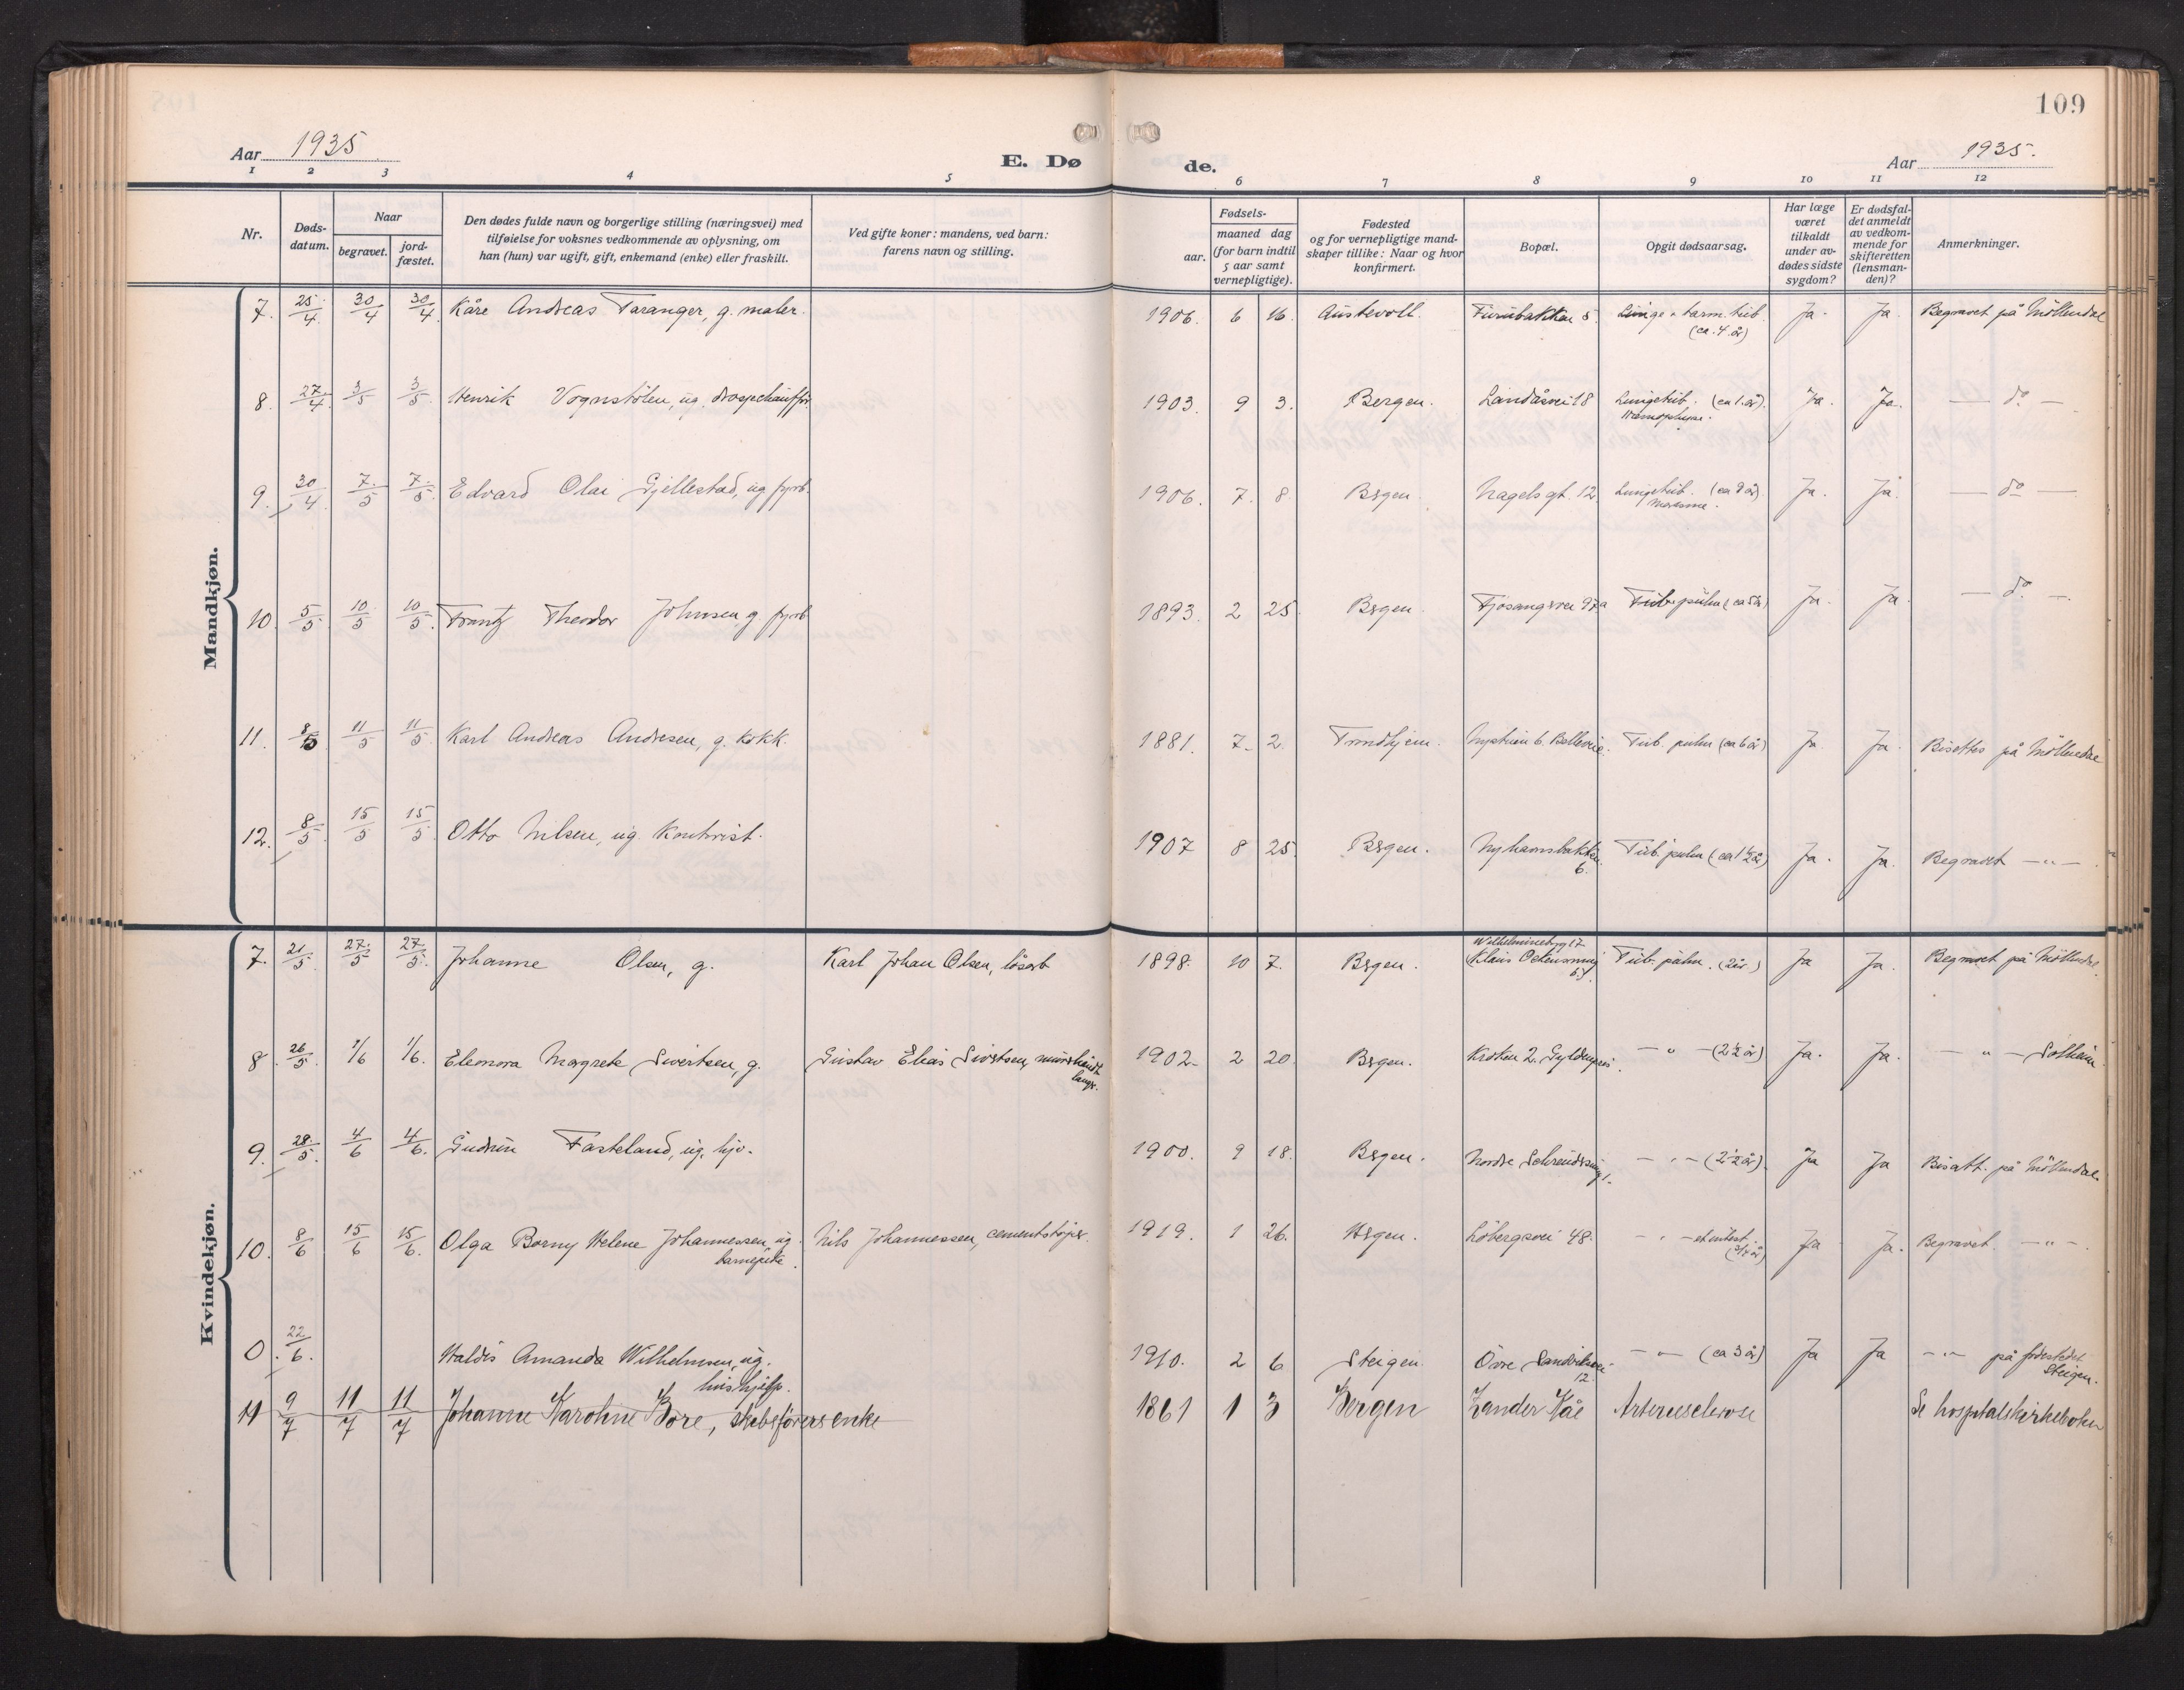 109
Aar 1935
E. Dø
de.
Aar 1935.
1 2 3 4 5 6 7 8 9 10 11 12
Nr.
Døds-
datum.
Naar
begravet.
jord-
fæstet.
Den dødes fulde navn og borgerlige stilling (næringsvei) med
tilføielse for voksnes vedkommende av oplysning, om
han (hun) var ugift, gift, enkemand (enke) eller fraskilt.
Ved gifte koner: mandens, ved barn:
farens navn og stilling.
Fødsels-
aar.
maaned dag
(for barn indtil
5 aar samt
vernepligtige).
Fødested
og for vernepligtige mand-
skaper tillike: Naar og hvor
konfirmert.
Bopæl.
Opgit dødsaarsag.
Har læge
været
tilkaldt
under av-
dødes sidste
sygdom?
Er dødsfal-
det anmeldt
av vedkom-
mende for
skifteretten
(lensman-
den)?
Anmerkninger.
Mandkjøn.
7. 25/4 30/4 30/4 Kåre Andreas Taranger, g. maler. 1906. 6 16. Austevoll. Furubakken 5 Lunge + tarm. tub. Ja. Ja. Begravet på Möllendal
(ca. 4. år)
8. 27/4 3/5 3/5 Henrik Vognstölen, ug. drosjechauffør. 1903. 9 3. Bergen. Landåsvei 18 Lungetub. (ca 1. år). Ja. Ja. — do —
9. 30/4 7/5 7/5 Edvard Olai Gjellestad, ug. fyrb. 1906. 7. 8. Bergen. Nagels gt. 12 Lungetub. (ca 8 år). Ja. Ja. — do —
10. 5/5 10/5 10/5 Frantz Theodor Johnsen, g. fyrb. 1893. 2 25. Bergen. Fjosangervei 97a Tub. pulm. (ca 5 år) Ja. Ja. — do —
11. 8/5 11/5 11/5 Karl Andreas Andresen, g. kokk. 1881. 7. 2. Trondhjem. b. Bellevue. Tub. pulm (ca 6 år) Ja Ja. Bisettes på Möllendal
12. 8/5 15/5 15/5 Otto Nilsen, ug. kontorist. 1907 8 25. Bergen. Nyhavnsbakken Tub. pulm (ca 1½ år) Ja. Ja. Begravet —"—
6.
Kvindekjøn.
7. 21/5 27/5 27/5 Johanne Olsen, g. Karl Johan Olsen, lösarb 1898. 10 7. Bergen. Tub. pulm. (2 år.) Ja Ja. Begravet på Möllendal.
8 26/5 1/6 1/6. Eleonora Margrete Sivertsen, g. Gustav Elias Sivertsen, murerhånd- 1902. 2 20. Bergen. Kroken 2. Gyldenpris. — " — (2½ år) Ja. Ja. — " — Solheim
langer.
9. 28/5 4/6 4/6. Gudrun Fasteland, ug. hjv. 1900. 9 18. Bergen. Nordre Skreudersmug 1. — " — (2½ år). Ja Ja Bisatt. på Möllendal
10. 8/6 15/6 15/6. Olga Borny Helene Johannessen, ug. Nils Johannessen, cementstöper. 1919. 1 26. Bergen. Löbergsvei 48. — " — et intest. Ja Ja. Begravet. —"—.
barnepike. (3/4 år)
0 22/6. Haldis Amanda Wilhelmsen, ug. 1910. 2 6 Steigen. Övre Sandviksvei — " — (ca 3 år) Ja Ja —"— på fødestedet
hushjelp. 12. Steigen.
11 9/7 11/7 11/7 Johanne Karoline Bore, skibsförers enke 1861 1 3 Bergen Zander Kåe Arteriesclerose Se hospitalskirkeboken